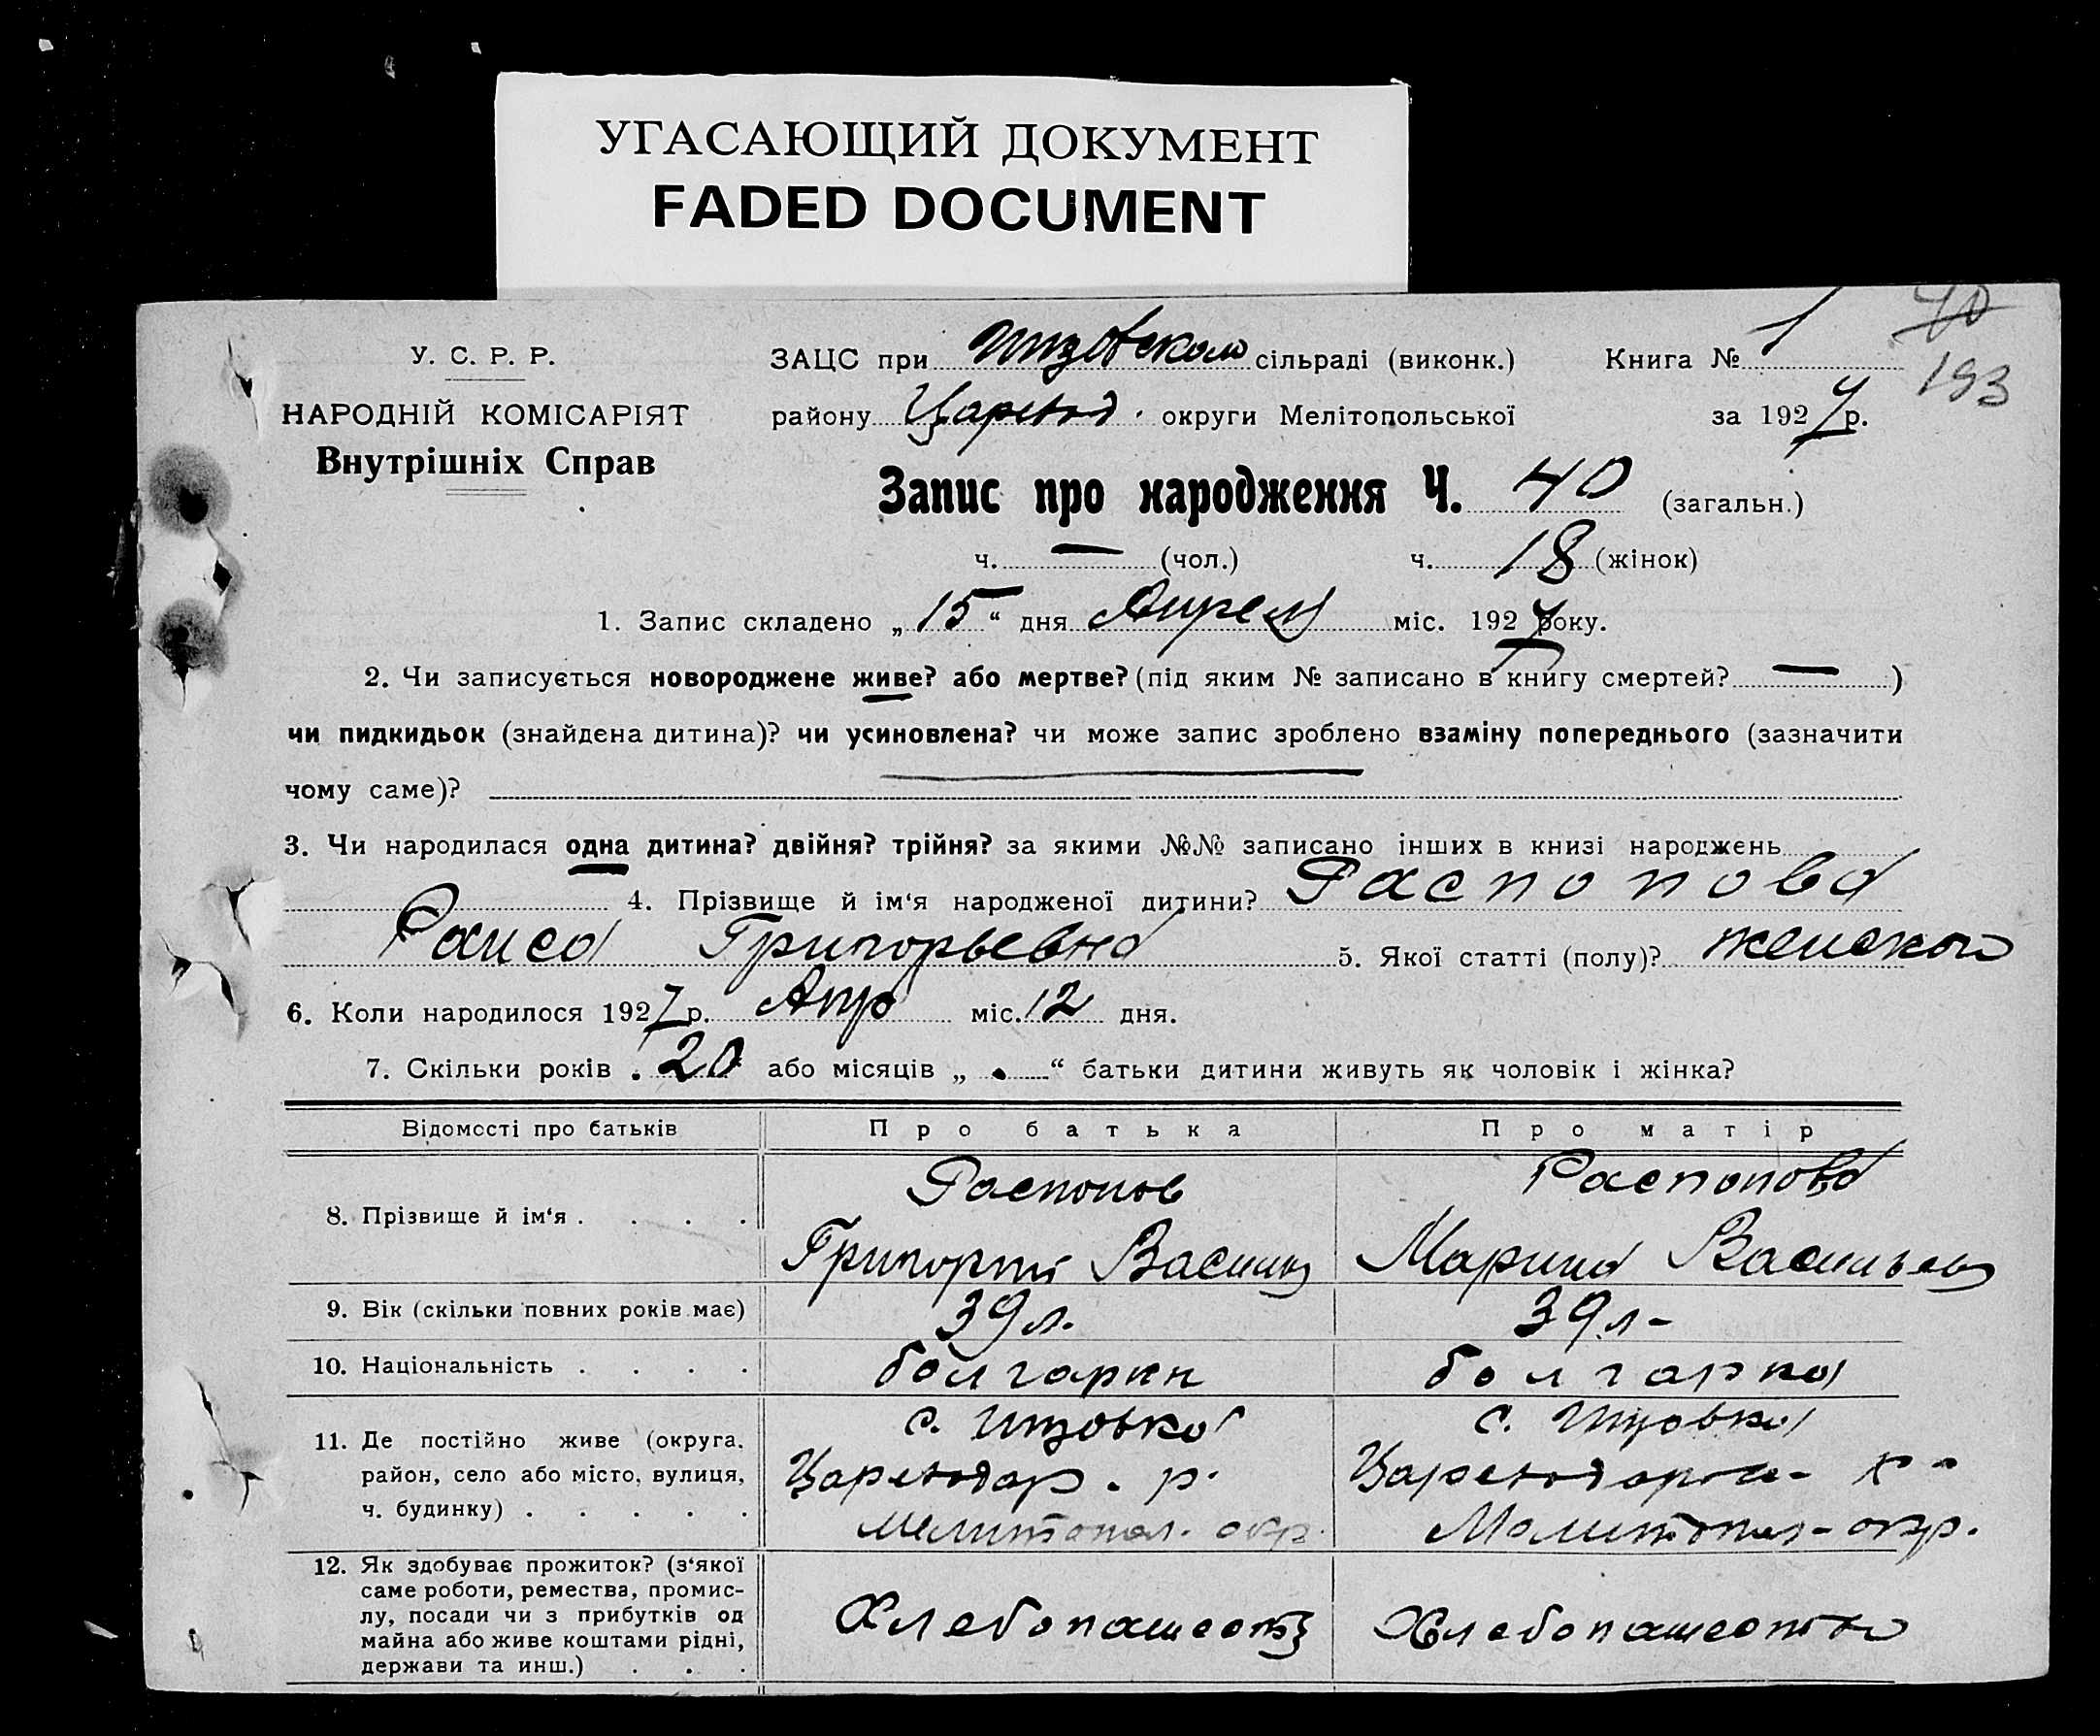 УГАСАЮЩИЙ ДОКУМЕНТ
FADED DOCUMENT
У. С. Р. Р.
НАРОДНІЙ КОМІСАРІЯТ
Внутрішніх Справ
ЗАЦС при сільраді (виконк.) Книга № 1 40
193
району Царевод. округи Мелітопольської за 1927 р.
Запис про народження Ч. 40 (загальн.)
ч. — (чол.) ч. 18 (жінок)
1. Запис складено „15“ дня Апреля міс. 1927 року.
2. Чи записується новороджене живе? або мертве? (під яким № записано в книгу смертей? — )
чи пидкидьок (знайдена дитина)? чи усиновлена? чи може запис зроблено взаміну попереднього (зазначити
чому саме)?
3. Чи народилася одна дитина? двійня? трійня? за якими №№ записано інших в книзі народжень
4. Прізвище й ім‘я народженої дитини? Распопова
Раиса Григорьевна 5. Якої статті (полу)? женского
6. Коли народилося 1927 р. Апр міс. 12 дня.
7. Скільки років 20 або місяців „ “ батьки дитини живуть як чоловік і жінка?
Відомості про батьків Про батька Про матір
8. Прізвище й ім‘я . . . . Распопов Распопова
Григорий Василь Марина Васильев
9. Вік (скільки повних років має) 39 л. 39 л -
10. Національність . . . . болгарин болгарка
11. Де постійно живе (округа, с. с.
район, село або місто, вулиця, р.
ч. будинку) . . . . . Мелитопол. окр. Мелитопол - окр.
12. Як здобуває прожиток? (з‘якої
саме роботи, ремества, промис-
лу, посади чи з прибутків од Хлебопашеств Хлебопашество
майна або живе коштами рідні,
держави та инш.) . . .